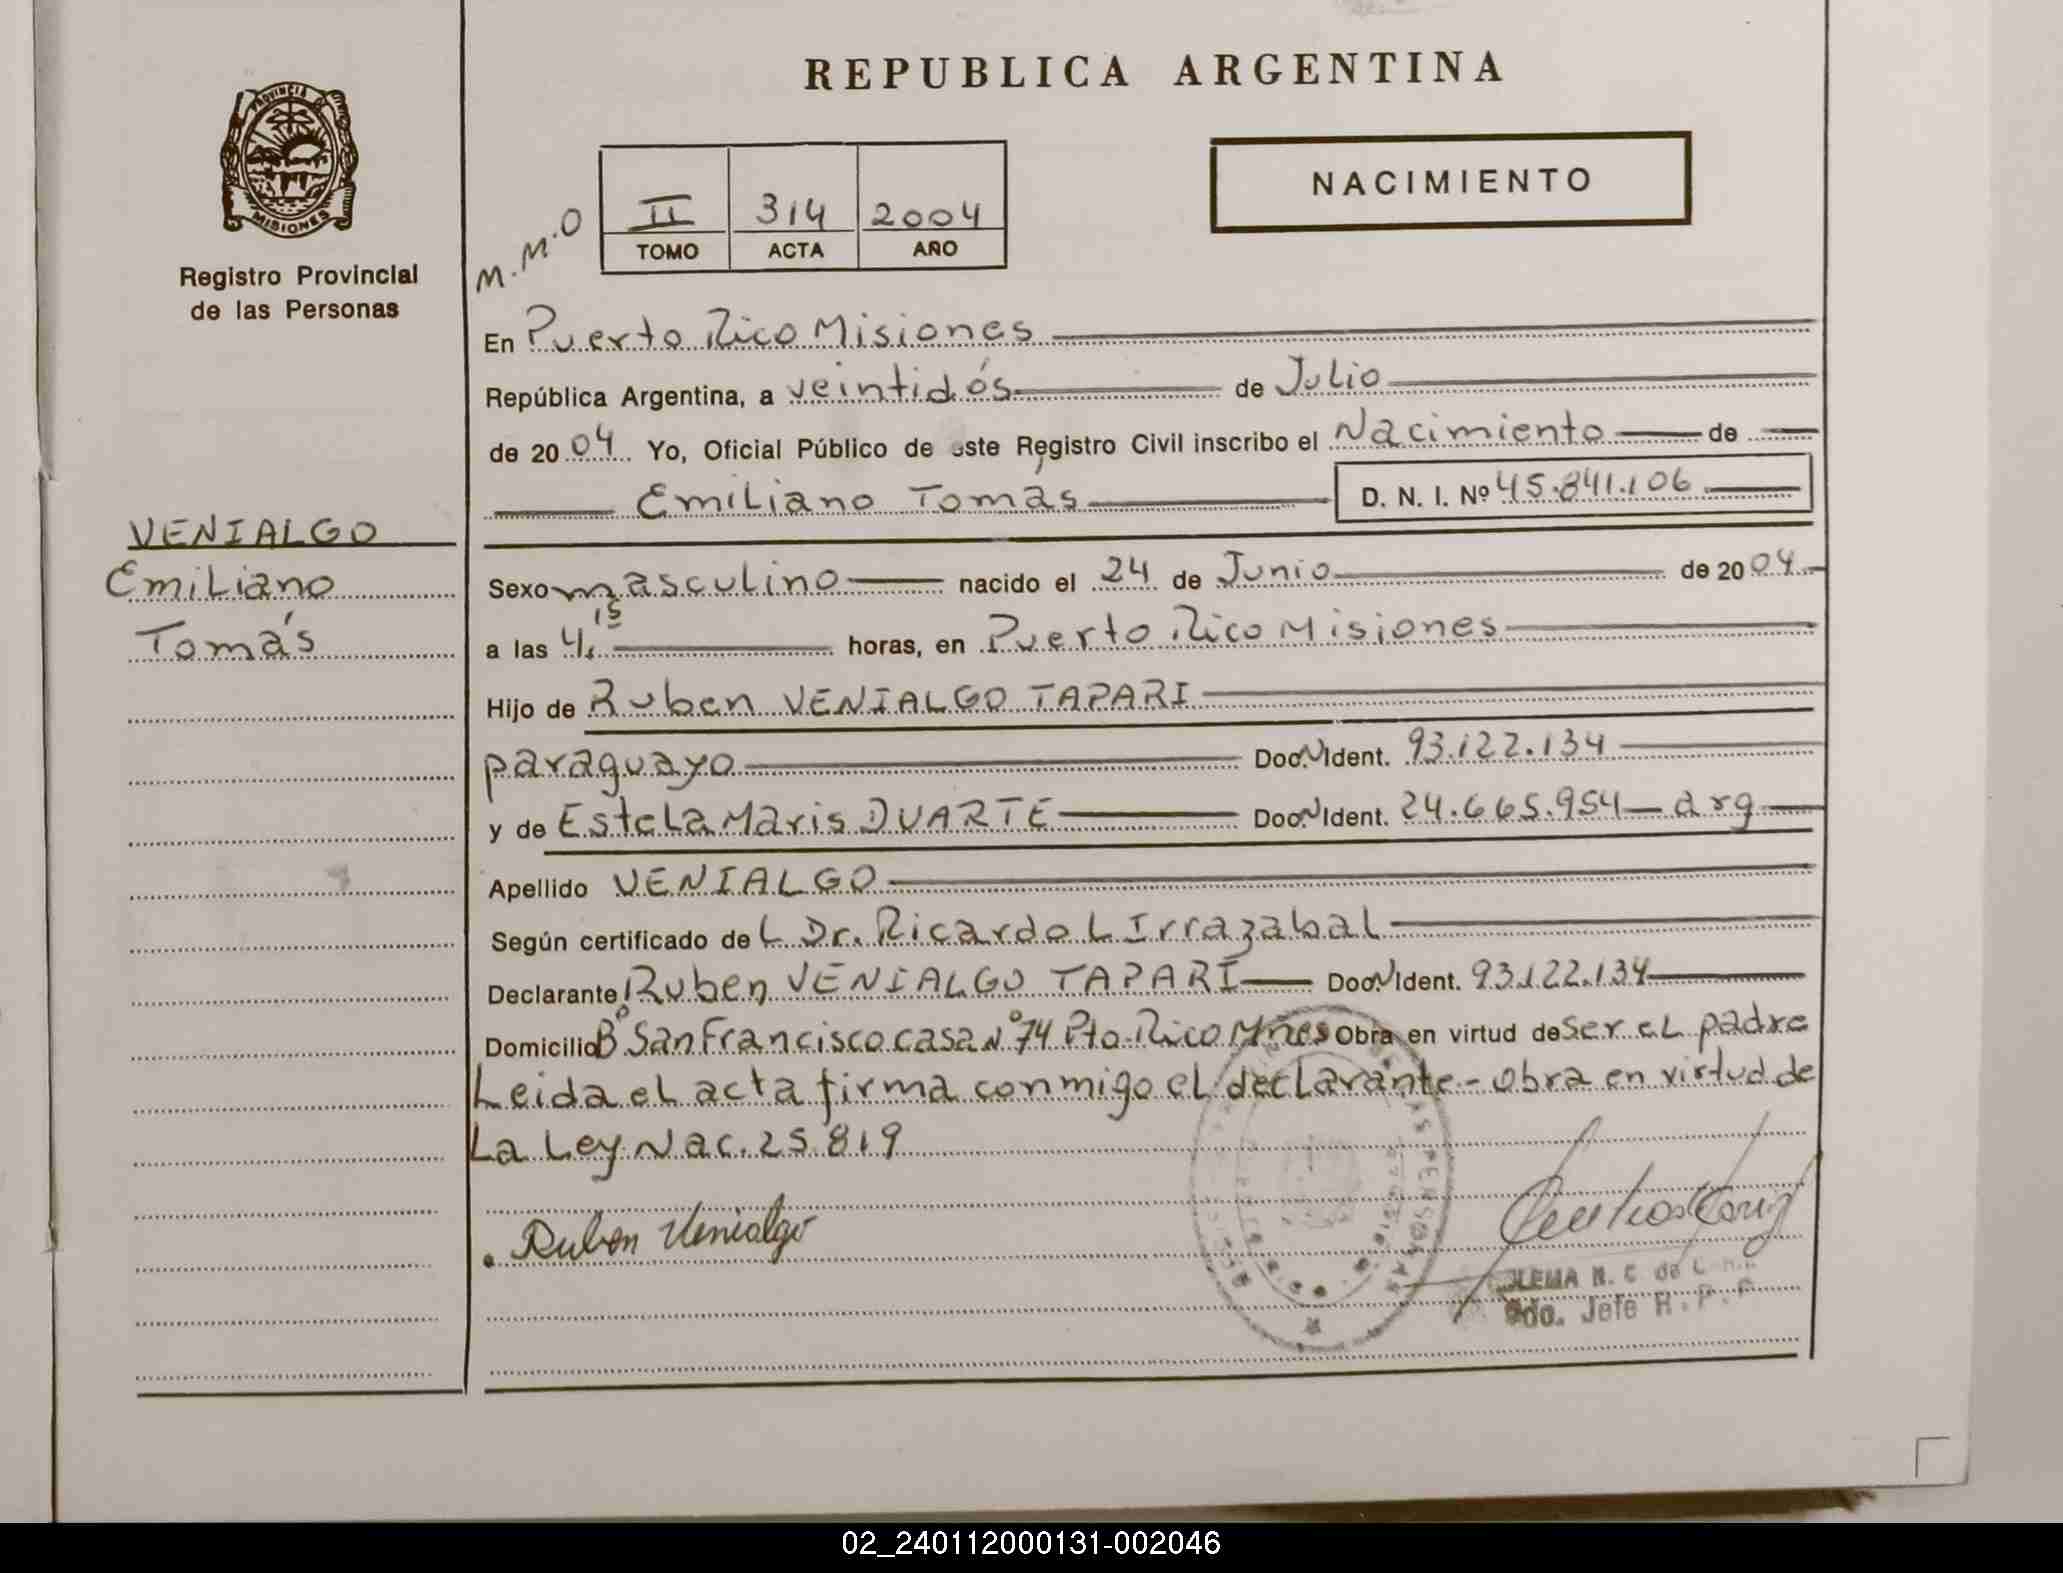 REPUBLICA ARGENTINA
PROVINCIA DE
MISIONES
Registro Provincial
de las Personas
M.M.O
II 314 2004
TOMO ACTA AÑO
NACIMIENTO
En Puerto Rico Misiones
República Argentina, a veintidós de Julio
de 2004 Yo, Oficial Público de este Registro Civil inscribo el Nacimiento de
Emiliano Tomás D. N. I. Nº 45.841.106
VENIALGO
Emiliano
Tomás
Sexo masculino nacido el 24 de Junio de 2004
a las 4,15 horas, en Puerto Rico Misiones
Hijo de Ruben VENIALGO TAPARI
paraguayo Doc. N Ident. 93.122.134
y de Estela Maris DUARTE Doc. N Ident. 24.665.954 - arg
Apellido VENIALGO
Según certificado del Dr. Ricardo L Irrazabal
Declarante Ruben VENIALGO TAPARI Doc. N Ident. 93.122.134
Domicilio Bº San Francisco casa Nº 74 Pto. Rico Mnes Obra en virtud de ser el padre
Leida el acta firma conmigo el declarante - obra en virtud de
La Ley Nac. 25.819
Ruben Venialgo
N. C. de
Jefe R. P. P
02_240112000131-002046